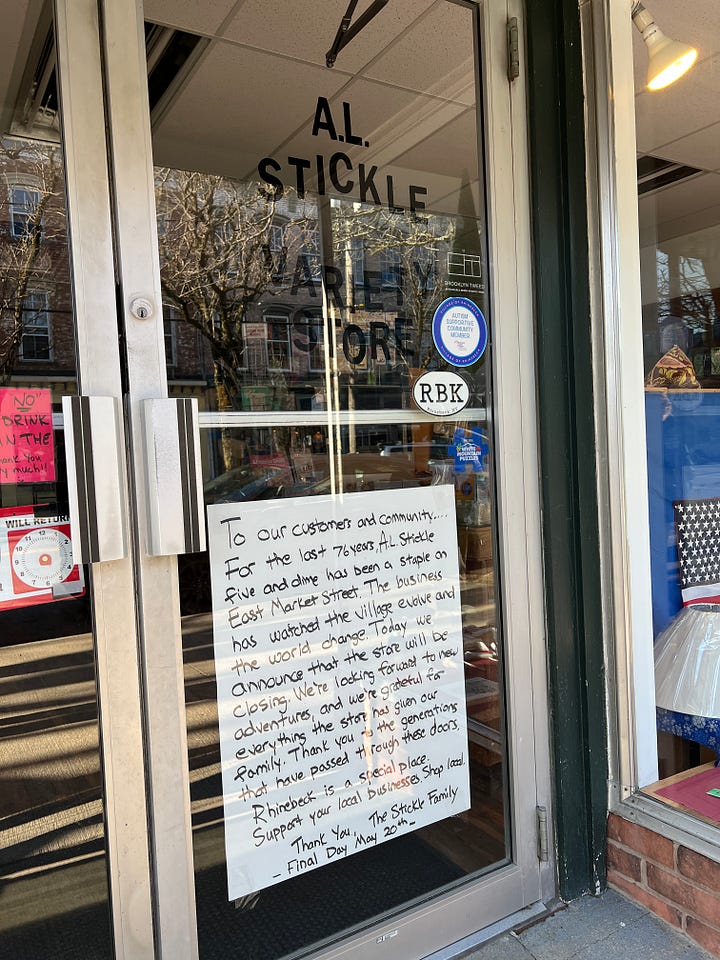 A.L.
STICKLE
VARIETY
STORE
BROOKLYN TWEED
AUTISM
SUPPORTIVE
COMMUNITY
MEMBER
RBK
WHITE
MOUNTAIN
PUZZLES
NO
DRINK
IN THE
Thank you
much!!
WILL RETURN
11 12 1
10 2
9 3
8 4
7 6 5
To our customers and community....
For the last 76 years, A.L. Stickle
five and dime has been a staple on
East Market Street. The business
has watched the village evolve and
the world change. Today we
announce that the store will be
closing. We're looking forward to new
adventures, and we're grateful for
everything the store has given our
family. Thank you to the generations
that have passed through these doors.
Rhinebeck is a special place.
Support your local businesses. Shop local.
Thank You, The Stickle Family
- Final Day May 20th -